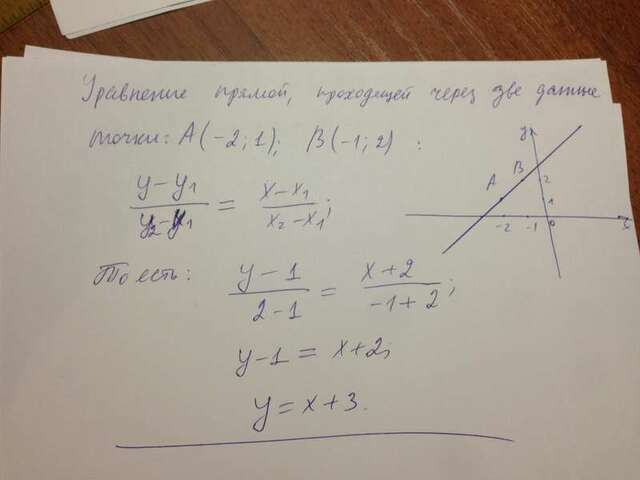 Уравнение прямой, проходящей через две данные
точки: A(-2;1); B(-1;2) :
y-y₁ / y₂-y₁ = x-x₁ / x₂-x₁;
y
B
A
2
1
-2 -1 0 x
То есть: y-1 / 2-1 = x+2 / -1+2;
y-1 = x+2;
y = x+3.